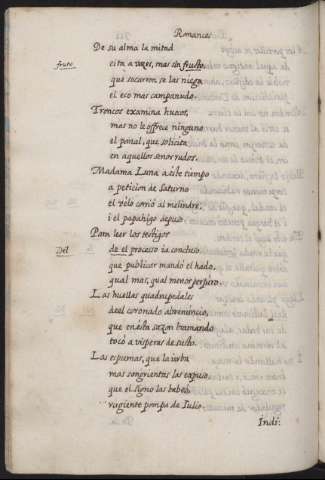 Romances
De su alma la mitad
fruto. cita a vozes, mas sin frusto,
que socarron se las niega
el eco mas campanudo.
Troncos examina huecos,
mas no le offrece ninguno
el panal, que solicita
en aquellos senos rudos.
Madama Luna a este tiempo
a peticion de Saturno
el velo corriò al melindre,
i el papahigo depuso
Para leer los testigos
Del de el processo ia concluso,
que publicar mandò el hado,
qual mas, qual menos perjuro.
Las huellas quadrupedales
del coronado abrenuncio,
que en esta sazon bramando
tocò a visperas de susto.
Las espumas, que la ierba
mas sangrientas las expuso,
que el signo las babeò
rugiente pompa de Julio.
Indi: